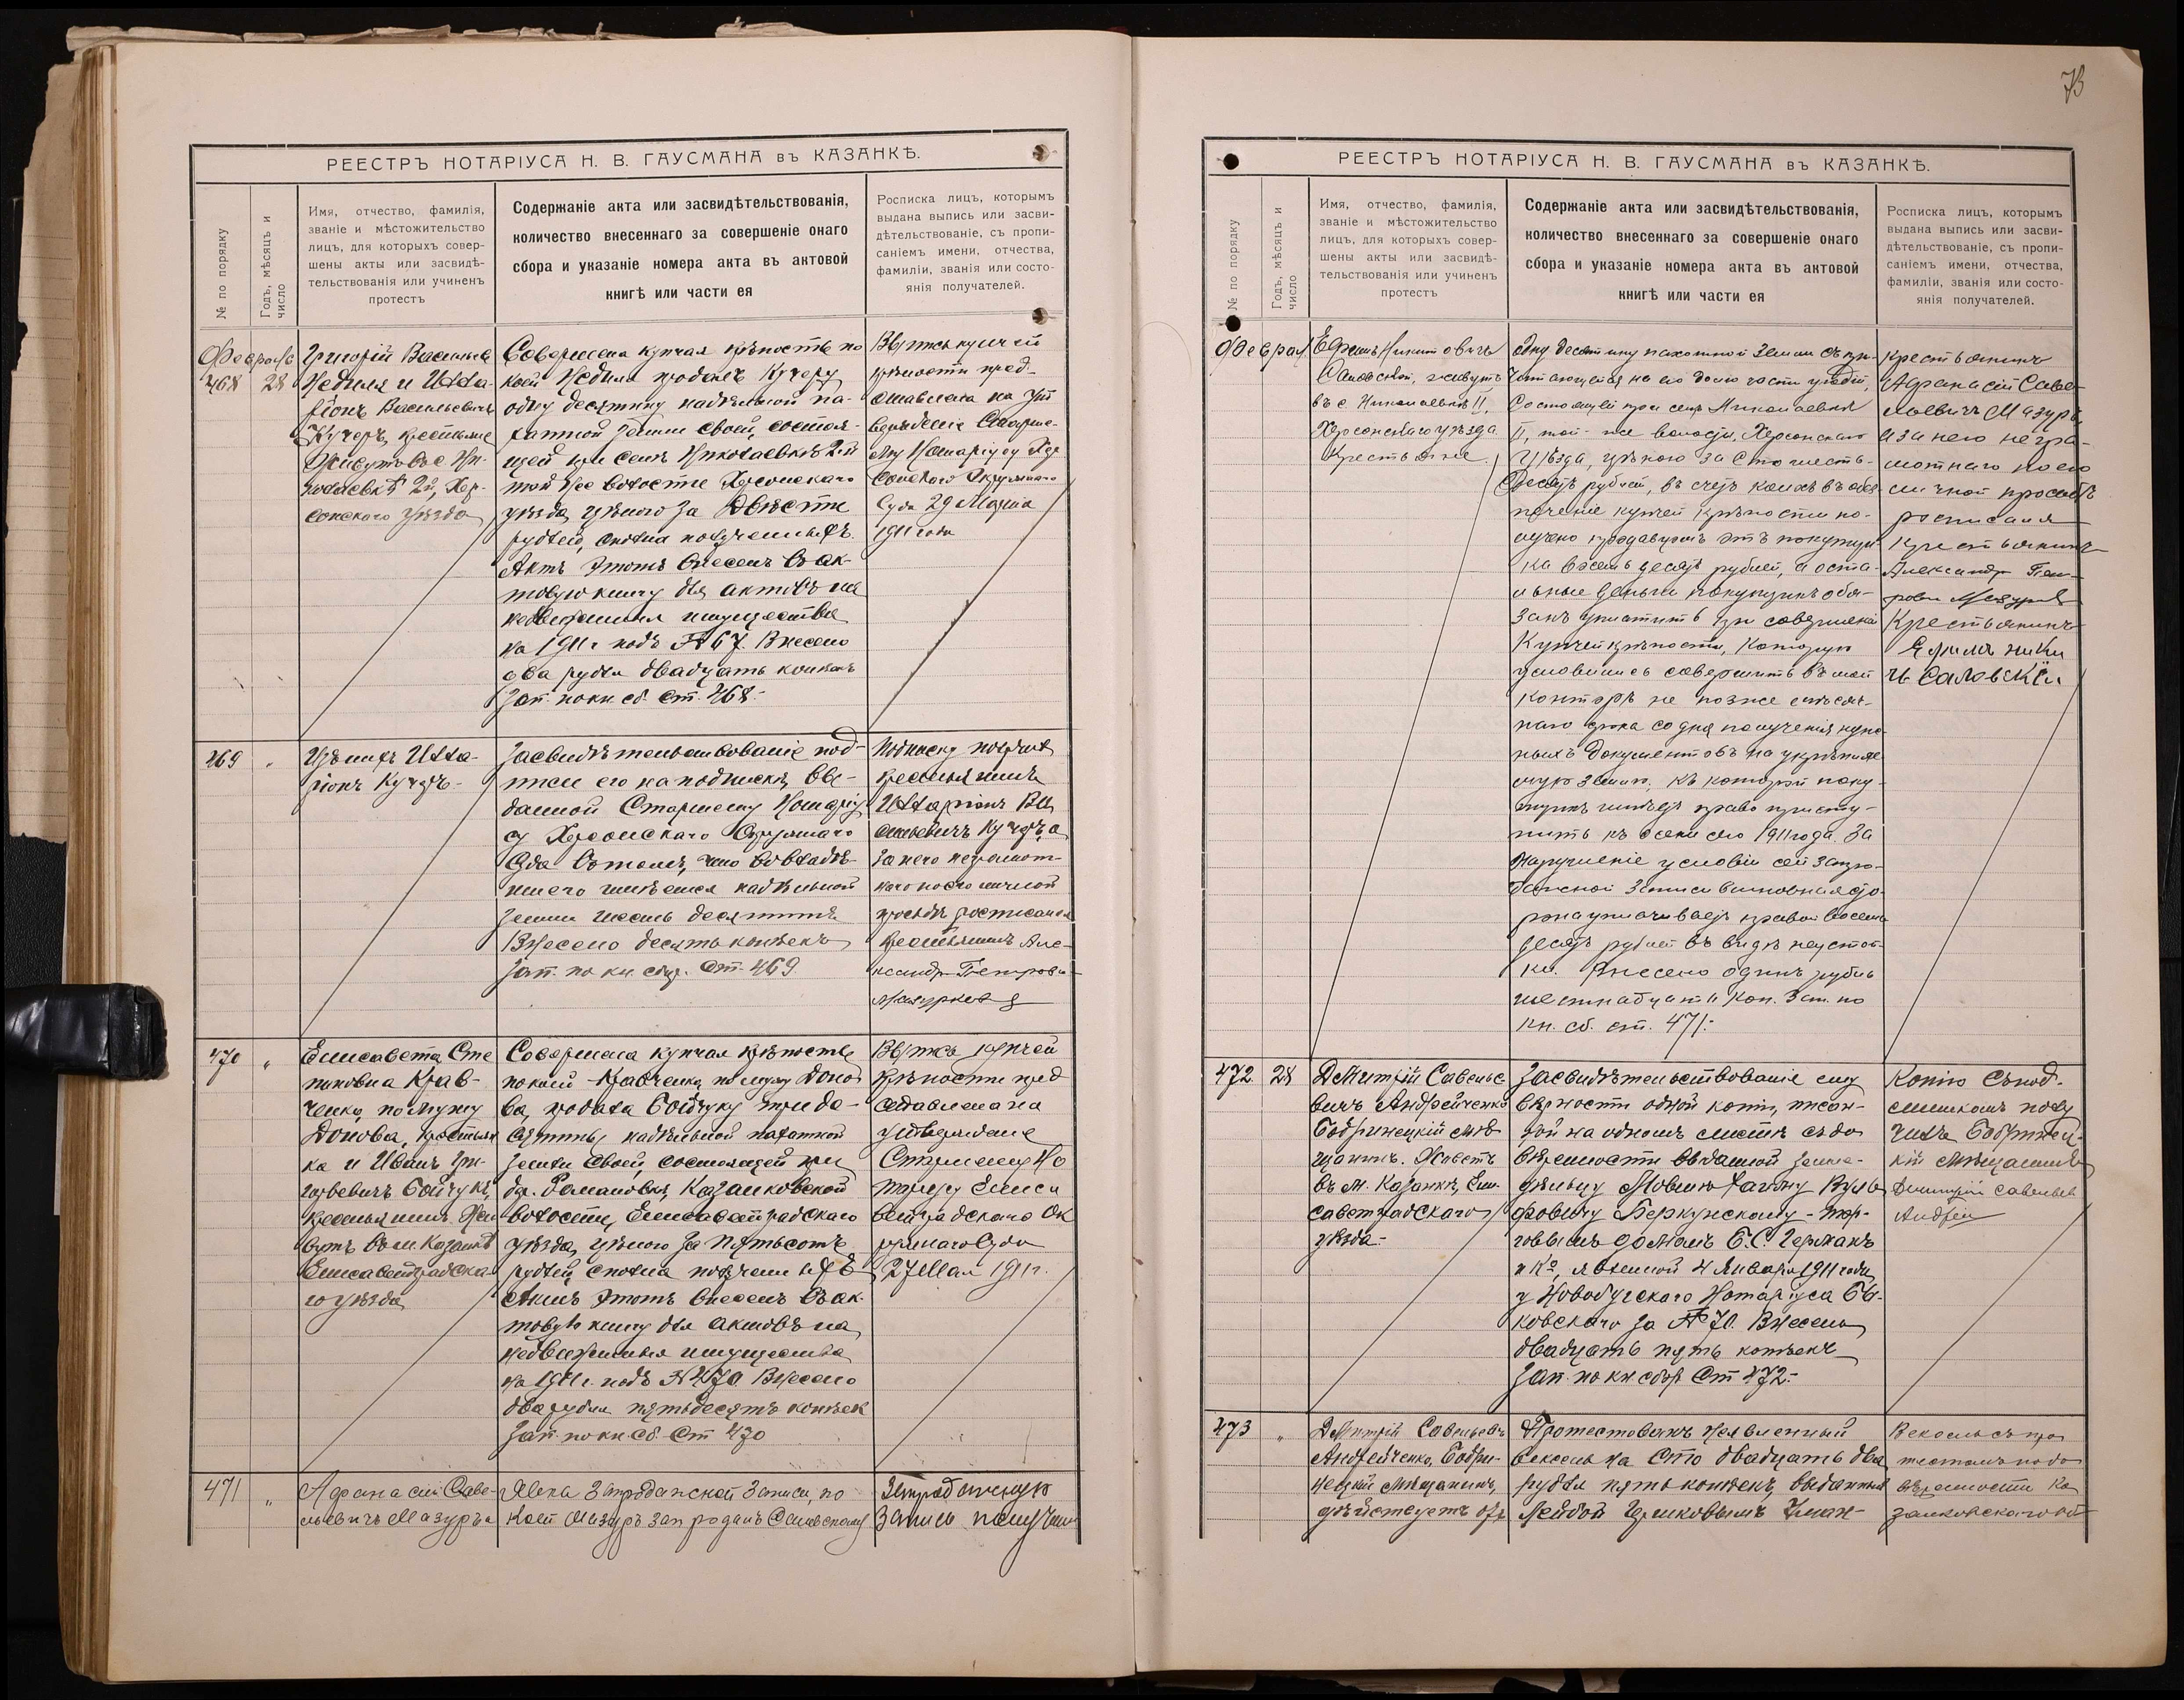 РЕЕСТРЪ НОТАРІУСА Н. В. ГАУСМАНА въ КАЗАНКѢ.
№ по порядку
Годъ, мѣсяцъ и
число
Имя, отчество, фамилія,
званіе и мѣстожительство
лицъ, для которыхъ совер-
шены акты или засвидѣ-
тельствованія или учиненъ
протестъ
Содержаніе акта или засвидѣтельствованія,
количество внесеннаго за совершеніе онаго
сбора и указаніе номера акта въ актовой
книгѣ или части ея
Росписка лицъ, которымъ
выдана выпись или засви-
дѣтельствованіе, съ пропи-
саніемъ имени, отчества,
фамиліи, званія или состо-
янія получателей.
Февраль
468 28
Григорій
Недиля и Илла-
ріонъ Васильевичъ
Кучеръ, крестьяне
Живутъ въ с. Ни-
колаевкѣ 2й, Хер-
сонскаго уѣзда
Совершена купчая крѣпость по
коей Недиля продалъ Кучеру
одну десятину надѣльной па-
хатной земли своей, состоя-
щей при селѣ Николаевкѣ 2й
той же волости Херсонскаго
уѣзда, цѣною за Двѣсти
рублей, сполна полученныхъ.
Актъ этотъ внесенъ въ ак-
товую книгу для актовъ на
недвижимыя имущества
на 1911 г подъ № 67. Внесено
два рубля двадцать копѣекъ
Зап. по кн. сб. Ст. 468.-
Выпись купчей
крѣпости пред-
ставлена на Ут
вержденіе Старше-
му Нотаріусу Хер
сонскаго Окружнаго
Суда 29 Марта
1911 года
469 "
Онъ же Илла-
ріонъ Кучеръ-
Засвидѣтельствованіе под-
писи его на подпискѣ, вы-
данной Старшему Нотаріу
су Херсонскаго Окружнаго
Суда въ томъ, что во владѣ-
ніи его имѣется надѣльной
земли шесть десятинъ
Внесено десять копѣекъ
Зап. по кн. сбор. Ст. 469
Подписку получилъ
крестьянинъ
Илларіонъ Ва
сильевичъ Кучеръ, а
за него неграмот-
наго по его личной
просьбѣ росписался
крестьянинъ Але-
ксандръ Петрова
470 "
Елисавета Сте
пановна Крав-
ченко, по мужу
Донова, крестьян
ка и Иванъ Гри-
горьевичъ Бойчукъ,
крестьянинъ. Жи
вутъ въ м. Казанкѣ
Елисаветградска-
го уѣзда
Совершена купчая крѣпость
по коей Кравченко по мужу Доно
ва, продала Бойчуку три де-
сятины надѣльной пахатной
земли своей, состоящей при
дер. Романовкѣ, Казанковской
волости, Елисаветградскаго
уѣзда, цѣною за Пятьсотъ
рублей сполна полученныхъ
Актъ этотъ внесенъ въ ак-
товую книгу для актовъ на
недвижимыя имущества
на 1911 г. подъ № 470. Внесено
два рубля пятьдесятъ копѣекъ
Зап. по кн. сб. Ст 470
Выпись купчей
крѣпости пред
ставлена на
утвержденіе
Старшему Но
таріусу Елиса
ветградскаго Ок
ружнаго Суда
27 Мая 1911 г.
471 "
Афанасій Саве-
льевичъ Мазуръ и
Явка Запродажной Записи, по
коей Мазуръ запродалъ Саловскому
Запродажную
Запись получилъ
73
РЕЕСТРЪ НОТАРІУСА Н. В. ГАУСМАНА въ КАЗАНКѢ.
№ по порядку
Годъ, мѣсяцъ и
число
Имя, отчество, фамилія,
званіе и мѣстожительство
лицъ, для которыхъ совер-
шены акты или засвидѣ-
тельствованія или учиненъ
протестъ
Содержаніе акта или засвидѣтельствованія,
количество внесеннаго за совершеніе онаго
сбора и указаніе номера акта въ актовой
книгѣ или части ея
Росписка лицъ, которымъ
выдана выпись или засви-
дѣтельствованіе, съ пропи-
саніемъ имени, отчества,
фамиліи, званія или состо-
янія получателей.
Феврал
Никитовичъ
Саловскій, живутъ
въ с. Николаевкѣ II,
Херсонскаго уѣзда
Крестьяне.
одну десятину пахотной земли съ при-
читающейся на его долю части угодій,
состоящей при селѣ Николаевкѣ
II, той-же волости, Херсонскаго
Уѣзда, цѣною за Сто шесть-
десятъ рублей, въ счетъ коихъ въ обез-
печеніе купчей крѣпости по-
лучено продавцомъ отъ покупщи-
ка восемь десятъ рублей, а оста-
льные деньги покупщикъ обя-
занъ уплатить при совершеніи
Купчей крѣпости, которую
условились совершить въ моей
Конторѣ не позже
наго срока со дня полученія нуж-
ныхъ документовъ на укрѣпляе-
мую землю, къ которой поку-
пщикъ имѣетъ право присту-
пить къ осени сего 1911 года. За
нарушеніе условій сей запро-
дажной Записи виновная сто-
рона уплачиваетъ правой восемь
десятъ рублей въ видѣ неустой-
ки. Внесено одинъ рубль
шестнадцать коп. Зап. по
кн. сб. ст. 471.-
крестьянинъ
Афанасій Саве-
льевичъ Мазуръ,
а за него негра-
мотнаго по его
личной просьбѣ
росписался
крестьянинъ
Александръ Пет-
рова
Крестьянинъ
Ники
чъ Саловскій
472 28
Дмитрій Савелье
вичъ Андрейченко
Бобринецкій мѣ
щанинъ. Живетъ
въ м. Казанкѣ, Ели
саветградскаго
уѣзда.-
Засвидѣтельствованіе ему
вѣрности одной копіи, писан-
ной на одномъ листѣ съ до
вѣренности выданной земле-
дѣльцу
Беркунскому - тор-
говымъ домомъ
и Ко, явленной 4 Января 1911 года
у Новобугскаго Нотаріуса Бы-
ковскаго за № 70. Внесено
двадцать пять копѣекъ
Зап. по кн сбор Ст 472.-
Копію съ под-
линникомъ полу
чилъ Бобринец-
кій мѣщанинъ
Дмитрій Савельев
Андрей
473 "
Дмитрій Савельевъ
Андрейченко, Бобри-
нецкій мѣщанинъ,
дѣйствуетъ
Протестованъ неявленный
вексель на Сто двадцать два
рубля пять копѣекъ, выданный
Лейбой
Вексель съ про
тестомъ по до
вѣренности Ка
занковскаго